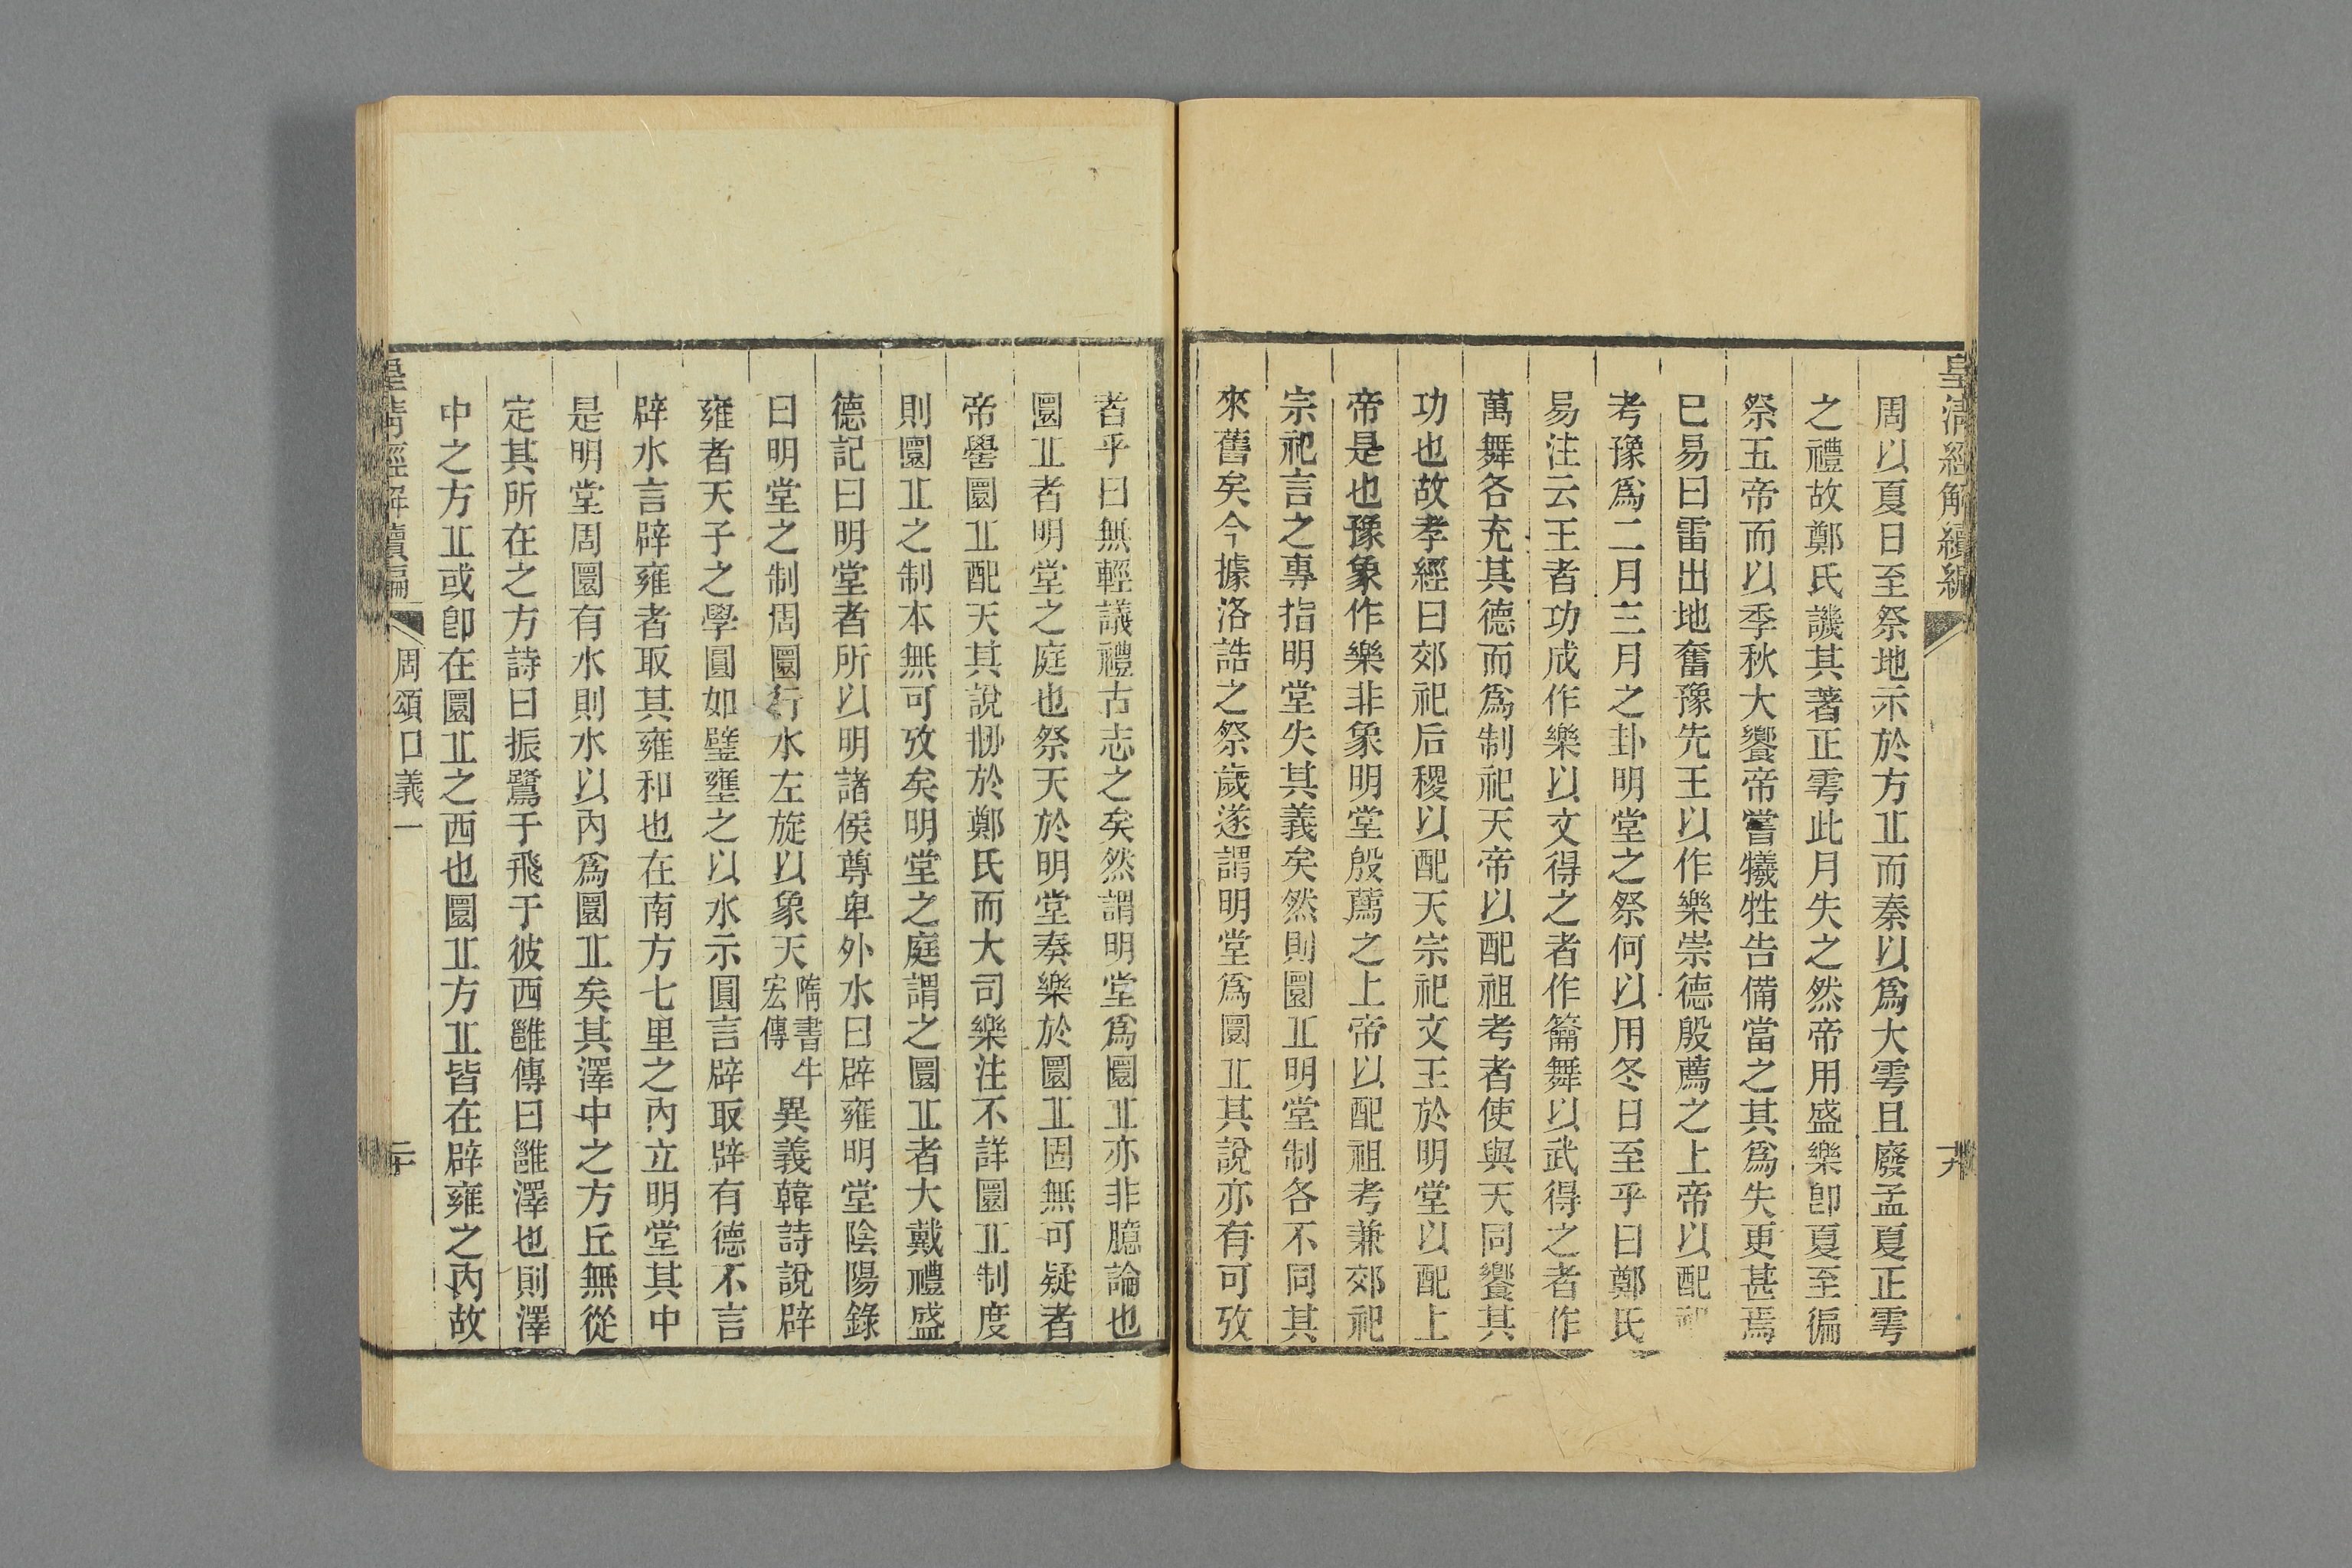 皇清經解續編
十九
周以夏日至祭地示於方丠而秦以爲大雩且廢孟夏正雩
之禮故鄭氏譏其著正雩此月失之然帝用盛樂卽夏至徧
祭五帝而以季秋大饗帝嘗犧牲告備當之其爲失更甚焉
已易曰雷出地奮豫先王以作樂崇德殷薦之上帝以配祖
考豫爲二月三月之卦明堂之祭何以用冬日至乎曰鄭氏
易注云王者功成作樂以文得之者作籥舞以武得之者作
萬舞各充其德而爲制祀天帝以配祖考者使與天同饗其
功也故孝經曰郊祀后稷以配天宗祀文王於明堂以配上
帝是也豫象作樂非象明堂殷薦之上帝以配祖考兼郊祀
宗祀言之專指明堂失其義矣然則圜丠明堂制各不同其
來舊矣今據洛誥之祭歲遂謂明堂爲圜丠其說亦有可攷
者乎曰無輕議禮古志之矣然謂明堂爲圜丠亦非臆論也
圜丠者明堂之庭也祭天於明堂奏樂於圜丠固無可疑者
帝嚳圜丠配天其說刱於鄭氏而大司樂注不詳圜丠制度
則圜丠之制本無可攷矣明堂之庭謂之圜丠者大戴禮盛
德記曰明堂者所以明諸侯尊卑外水曰辟雍明堂陰陽錄
曰明堂之制周圜行水左旋以象天隋書牛宏傳異義韓詩說辟
雍者天子之學圓如璧壅之以水示圓言辟取辟有德不言
辟水言辟雍者取其雍和也在南方七里之內立明堂其中
是明堂周圜有水則水以內爲圜丠矣其澤中之方丘無從
定其所在之方詩曰振鷺于飛于彼西雝傳曰雝澤也則澤
中之方丠或卽在圜丠之西也圜丠方丠皆在辟雍之內故
皇清經解續編
周頌口義一
二十